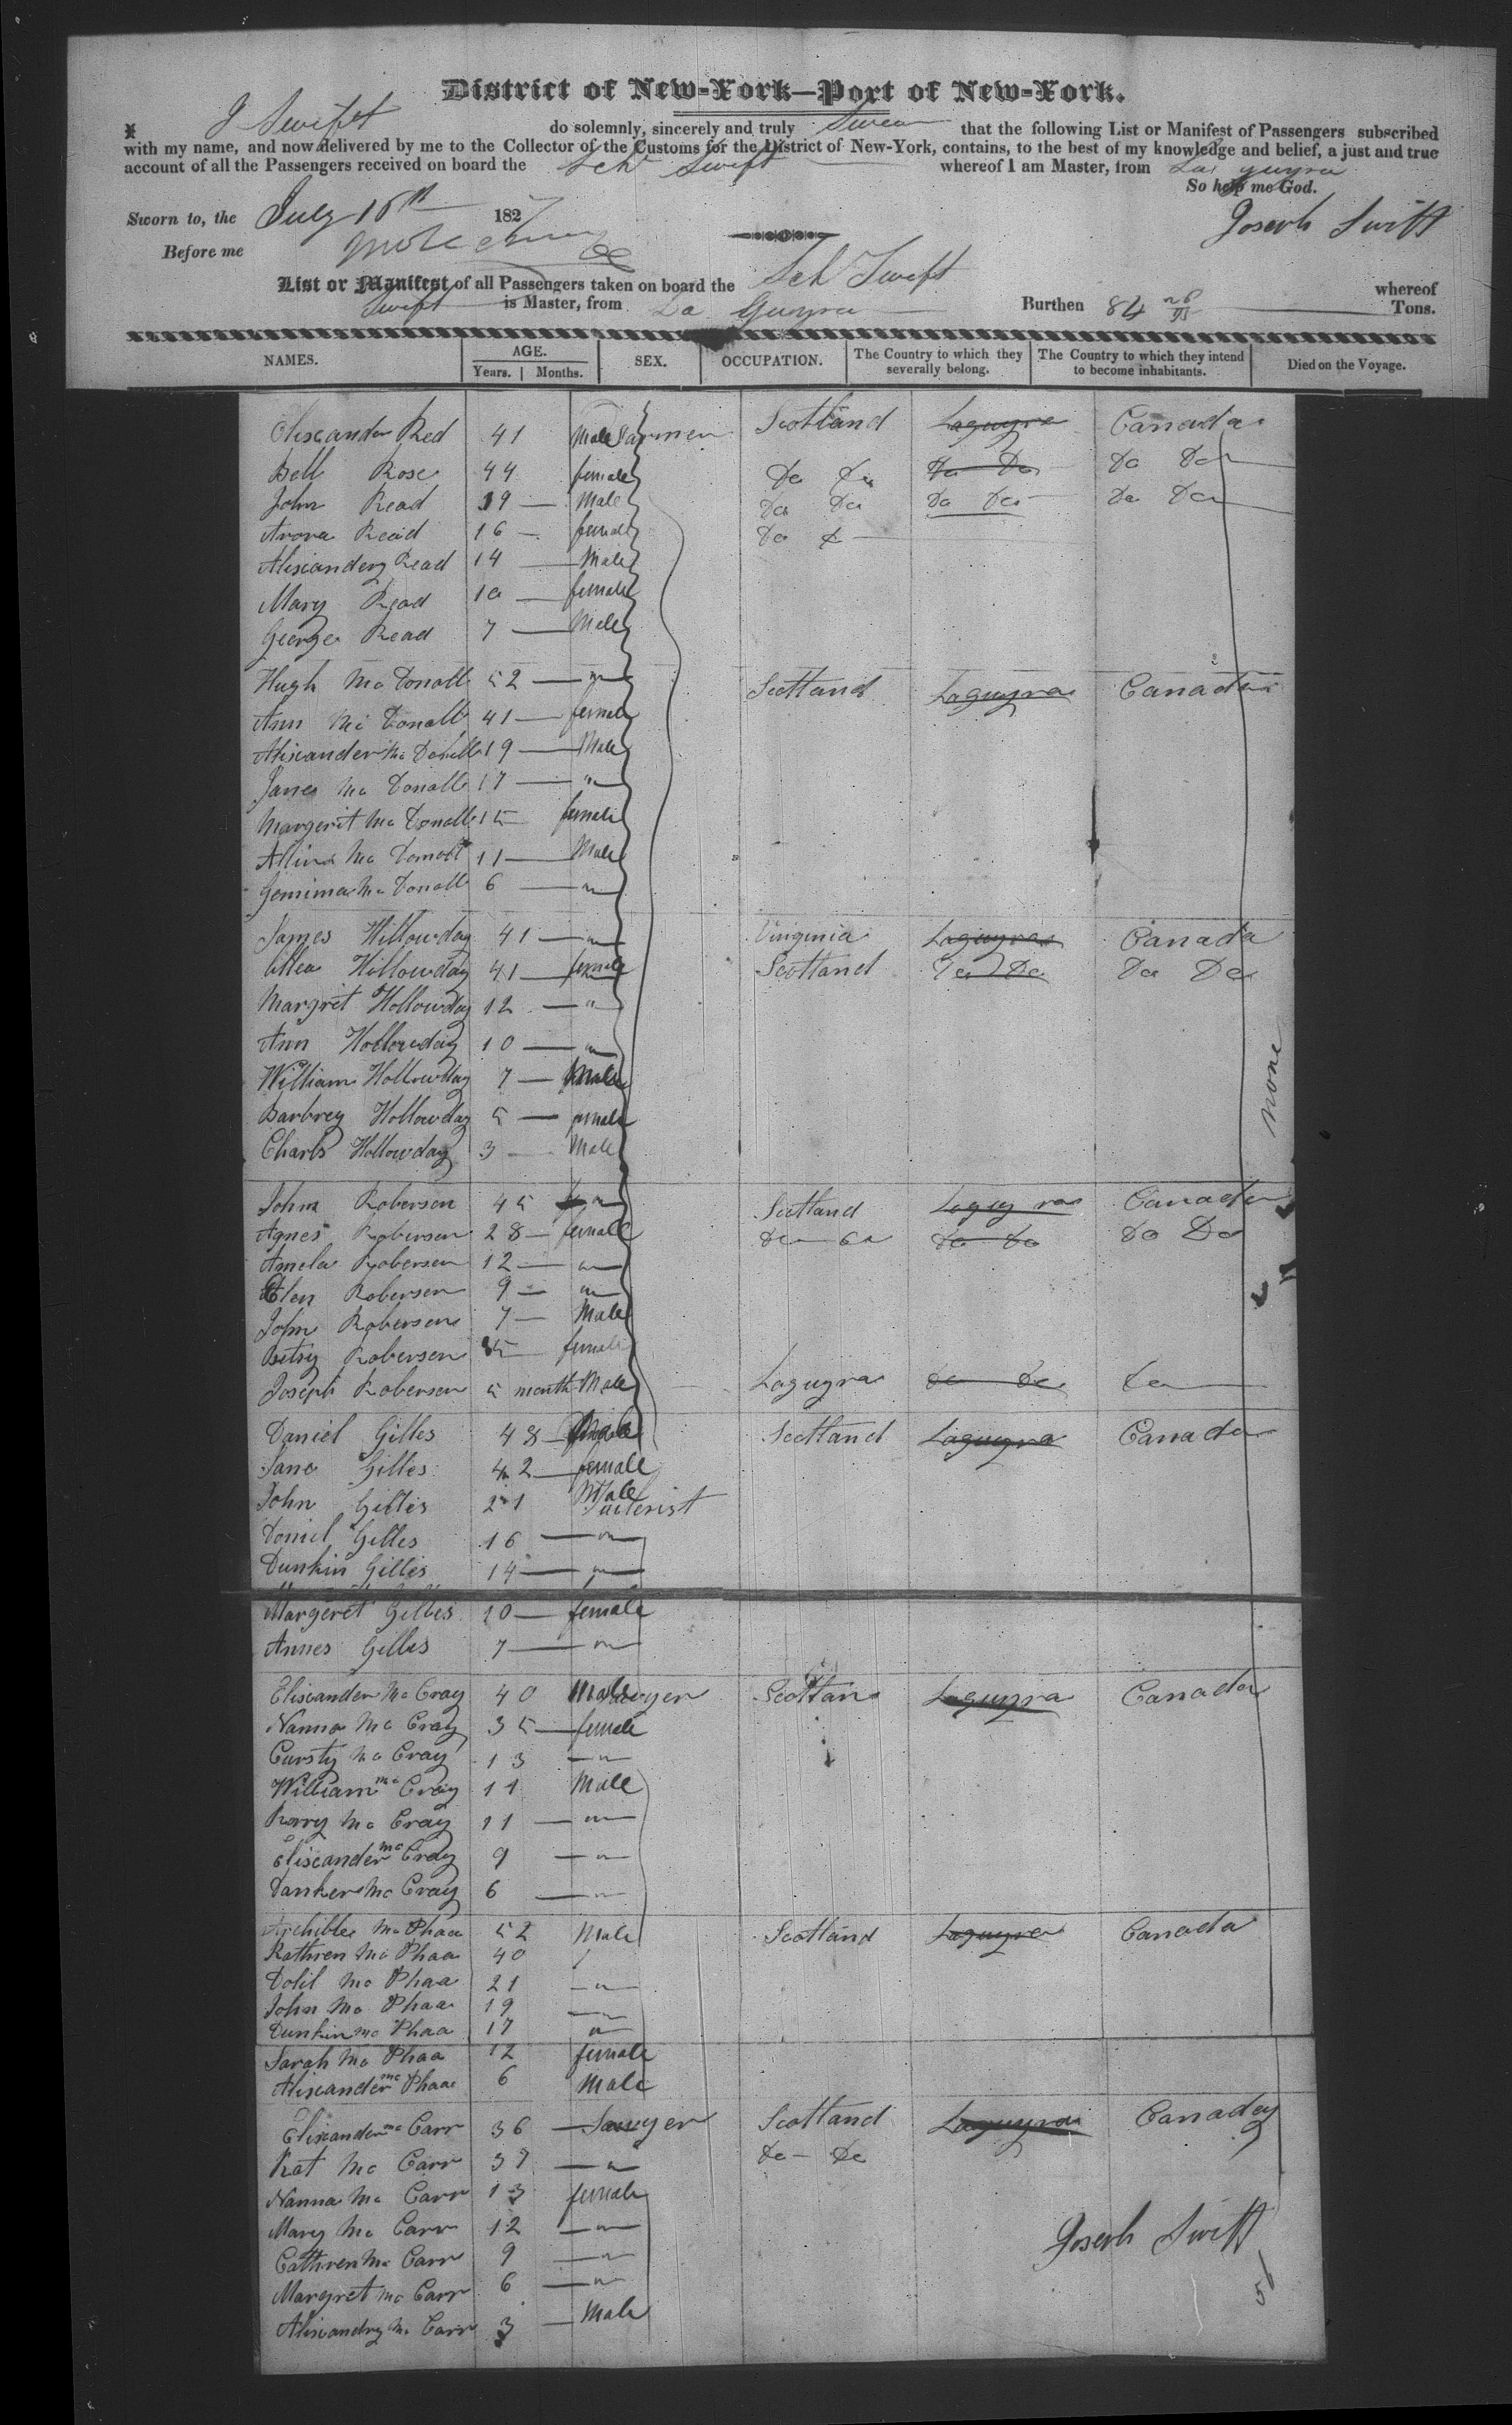 District of New-York—Port of New-York.
I J Swift do solemnly, sincerely and truly Swear that the following List or Manifest of Passengers subscribed
with my name, and now delivered by me to the Collector of the Customs for the District of New-York, contains, to the best of my knowledge and belief, a just and true
account of all the Passengers received on board the Schr Swift whereof I am Master, from La guyra
So help me God.
Sworn to, the July 16th 1827
Joseph Swift
Before me
List or Manifest of all Passengers taken on board the Sch Swift whereof
Swift is Master, from La Guyra Burthen 84 Tons.
NAMES. AGE. Years. Months. SEX. OCCUPATION. The Country to which they severally belong. The Country to which they intend to become inhabitants. Died on the Voyage.
Eliscander Red 41 Male Farmer Scotland Laguyra Canada
Bell Rose 44 female Do Do Do Do Do Do
John Read 19 — Male Do Do Do Do Do Do
Arora Read 16 — female Do D
Aliscanderg Read 14 — Male
Mary Read 10 — female
George Read 7 — Male
Hugh Mc Donall 52 — " Scotland Laguyra Canada
Ann Mc Donall 41 — female
Aliscander Mc Donall 19 — Male
James Mc Donall 17 — "
Margerit Mc Donall 15 female
Mc Donall 11 — Male
Gemima Mc Donall 6 — "
James Hillowday 41 — " Virginia Laguyra Canada
Hollowday 41 — female Scotland Do Do Do Do
Margret Hollowday 12 — "
Ann Hollowday 10 — "
William Hollowday 7 — Male
Barbrey Hollowday 5 — female
Charls Hollowday 3 — Male
none
John Roberson 45 " Scotland Laguyra Canada
Agnes Roberson 28 — female Do Do Do Do Do Do
Amela Roberson 12 — "
Elen Roberson 9 — "
John Roberson 7 — Male
Betsy Roberson 5 — female
Joseph Roberson 5 month Male Laguyra Do Do Do
Daniel Gilles 48 — Male Scotland Laguyra Canada
Jane Gilles 42 — female
John Gilles 21 Male
Doniel Gilles 16 — "
Dunkin Gilles 14 — "
Margeret Gilles 10 — female
Annes Gilles 7 — "
Eliscander Mc Cray 40 Male Sawyer Scottan Laguyra Canada
Nanna Mc Cray 35 — female
Cursty Mc Cray 13 — "
William Mc Cray 11 Male
Rory Mc Cray 11 — "
Eliscander Mc Cray 9 — "
Danken Mc Cray 6 — "
Archible Mc Phaa 52 Male Scotland Laguyra Canada
Kathren Mc Phaa 40
Dolil Mc Phaa 21 — "
John Mc Phaa 19 — "
Dunkin Mc Phaa 17 "
Sarah Mc Phaa 12 female
Aliscander Mc Phaa 6 Male
Eliscander Mc Carr 36 — Sawyer Scotland Laguyra Canaday
Kat Mc Carr 37 — " Do — Do
Nanna Mc Carr 13 female
Mary Mc Carr 12 — "
Cathren Mc Carr 9 — "
Margret Mc Carr 6 — "
Aliscandry Mc Carr 3 — Male
Joseph Swift